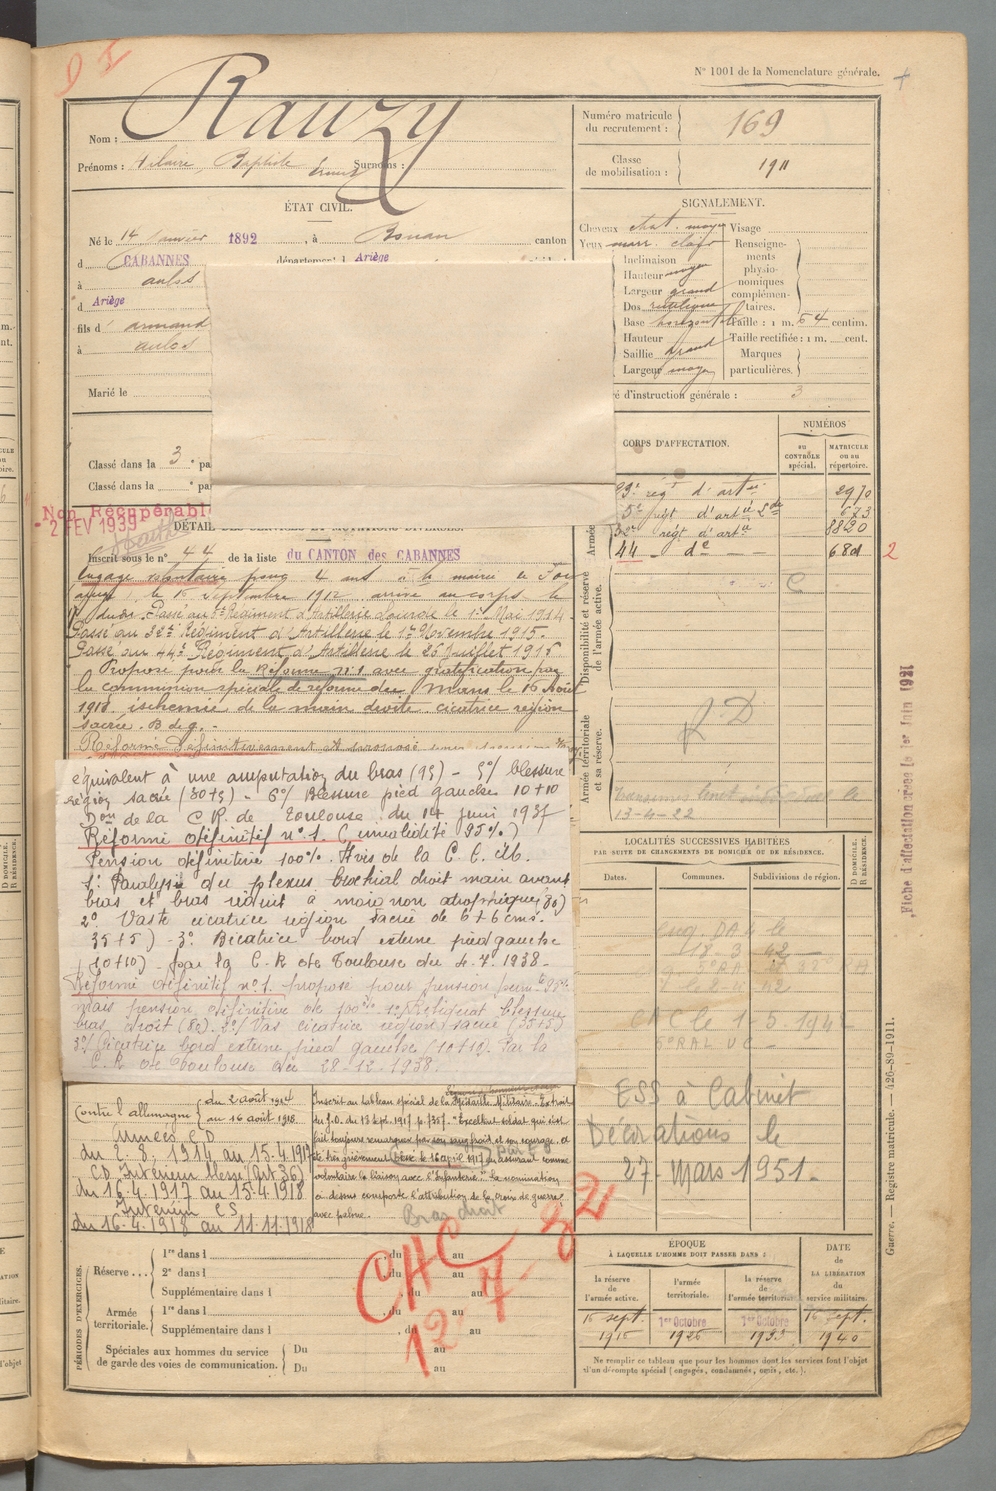 N° 1001 de la Nomenclature générale.
Rauzy
Nom :
Prénoms : Hilaire, Baptiste Surnoms :
Numéro matricule du recrutement : 169
Classe de mobilisation : 1911
ÉTAT CIVIL.
Né le 14 Janvier 1892, à Bouan canton
d CABANNES département d Ariège
à aulos
d Ariège
fils d armand
à aulos
Marié le
Classé dans la 3
Classé dans la
SIGNALEMENT.
Cheveux chat. moyen Visage
Yeux marr. clair
Inclinaison
Hauteur moyen
Largeur grand
Dos rectiligne
Base horizontale
Hauteur
Saillie grand
Largeur moyen
Renseignements physionomiques complémentaires.
Taille : 1 m. 64 centim.
Taille rectifiée : 1 m. cent.
Marques particulières.
é d'instruction générale : 3
CORPS D'AFFECTATION.
NUMÉROS
au CONTRÔLE spécial.
MATRICULE ou au répertoire.
régt d'arte 2970
régt d'art 673
32e régt d'arte 8820
44 - de - 681 2
Disponibilité et réserve de l'armée active.
Armée territoriale et sa réserve.
C
R D
13-4-22
Non Récupérable
- 2 FEV 1939
DÉTAIL DES SERVICES ET MUTATIONS DIVERSES.
Inscrit sous le n° 44 de la liste du CANTON des CABANNES
Engagé volontaire pour 4 ans à la mairie de
le 16 Septembre 1912 arrivé au corps le
17 dudit. Passé au Régiment d'Artillerie lourde le 1er Mai 1914
Passé au 32e Régiment d'Artillerie le 1er Novembre 1915.
Passé au 44e Régiment d'Artillerie le 25 Juillet 1915
Proposé pour la Réforme n° 1 avec gratification par
la commission spéciale de réforme du Mans le 16 Août
1918. ischémie de la main droite. cicatrice région
sacrée. B de g. -
Réformé Définitivement et proposé
équivalent à une amputation du bras (95) - 5°/ blessure
région sacrée (30+5) - 6°/ Blessure pied gauche 10+10
Don de la C.R. de Toulouse du 14 juin 1937
Réformé définitif n° 1. (invalidité 95%)
Pension définitive 100%. Avis de la C. C. M.
1° Paralysie du plexus brachial droit main avant
bras et bras réduit à moignon atrophique (80)
2° Vaste cicatrice région sacrée de 6+6 cms.
35+5) - 3° Cicatrice bord externe pied gauche
(10+10) - par la C.R de Toulouse du 4.7.1938 -
Réformé définitif n° 1. proposé pour pension perm
mais pension définitive de 100% 1°/ Reliquat blessure
bras droit (80). 2°/ Vas cicatrice région sacrée (35+5)
3°/ Cicatrice bord externe pied gauche (10+10). Par la
C.R de Toulouse du 28-12-1938.
Contre l'allemagne { du 2 août 1914
au 16 août 1918.
Armées C.D
du 2.8.1914 au 15.4.1917
C.D. Intérieur blessé (Art 36)
du 16.4.1917 au 15.4.1918
Intérieur CS
du 16.4.1918 au 11.11.1918
Inscrit au tableau spécial de la Médaille Militaire. Extrait
du J.O. du 13 Sept. 1917 p. 7357. "Excellent soldat qui s'est
fait toujours remarquer par son sang froid et son courage. a
été très grièvement blessé le 16 avril 1917 en assurant comme
volontaire la liaison avec l'Infanterie." la nomination
ci dessus comporte l'attribution de la croix de guerre
avec palme.
par E O
Bras droit
CHC
12-7-32
LOCALITÉS SUCCESSIVES HABITÉES
PAR SUITE DE CHANGEMENTS DE DOMICILE OU DE RÉSIDENCE.
Dates. Communes. Subdivisions de région.
D DOMICILE. R RÉSIDENCE.
18 3 42
CAC le 1-5 1942
5°RAL UC -
ESS à Cabinet
Décorations le
27 - Mars 1951 -
PÉRIODES D'EXERCICES.
Réserve ...
1re dans l , du au
2e dans l , du au
Supplémentaire dans l du au
Armée territoriale.
1re dans l , du au
Supplémentaire dans l , du au
Spéciales aux hommes du service de garde des voies de communication.
Du au
Du au
ÉPOQUE
À LAQUELLE L'HOMME DOIT PASSER DANS :
la réserve de l'armée active.
l'armée territoriale.
la réserve de l'armée territoriale.
DATE de LA LIBÉRATION du service militaire.
16 sept. 1916
1er Octobre 1926
1er Octobre 1933
16 sept. 1940
Ne remplir ce tableau que pour les hommes dont les services font l'objet
d'un décompte spécial (engagés, condamnés, omis, etc.).
Fiche d'affectation créée le 1er Juin 1921
Guerre. — Registre matricule. — 426-89-1911.